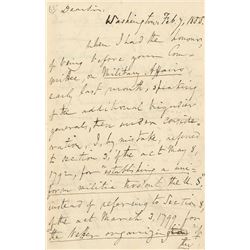 Dear Sir.
Washington, Feb. 7, 1855.
When I had the honour
of being before your Com-
mittee on Military Affairs,
early last month, speaking
of the additional brigadier
general, then under conside-
ration, I, by mistake, referred
to section 3, of the act May 8,
1792, for "establishing a uni-
form militia throu't the U. S."
instead of referring to Section 8
of the act March 3, 1799, for
the better organizing of
the